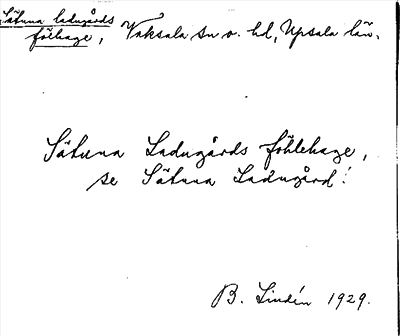 Sätuna ladugårds
fölhage, Vaksala sn o. hd, Upsala län.
Sätuna Ladugårds föhlehage,
se Sätuna Ladugård!
B. Lindén 1929.